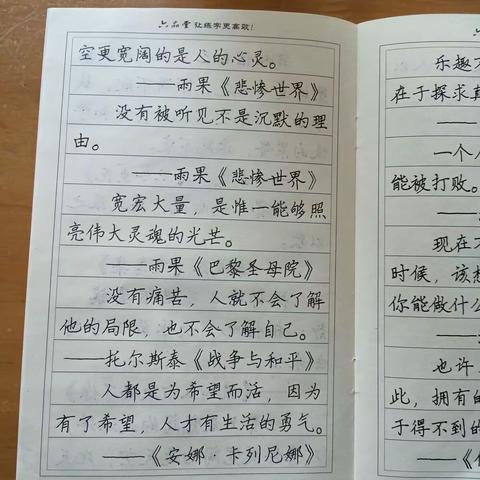 六品堂 让练字更高效!
空更宽阔的是人的心灵。
——雨果《悲惨世界》
没有被听见不是沉默的理
由。
——雨果《悲惨世界》
宽宏大量，是惟一能够照
亮伟大灵魂的光芒。
——雨果《巴黎圣母院》
没有痛苦，人就不会了解
他的局限，也不会了解自己。
——托尔斯泰《战争与和平》
人都是为希望而活，因为
有了希望，人才有生活的勇气。
——《安娜·卡列尼娜》
乐趣
在于探求
一个人
能被打败。
现在
时候，该想
你能做什么
也许
此，拥有的
于得不到的